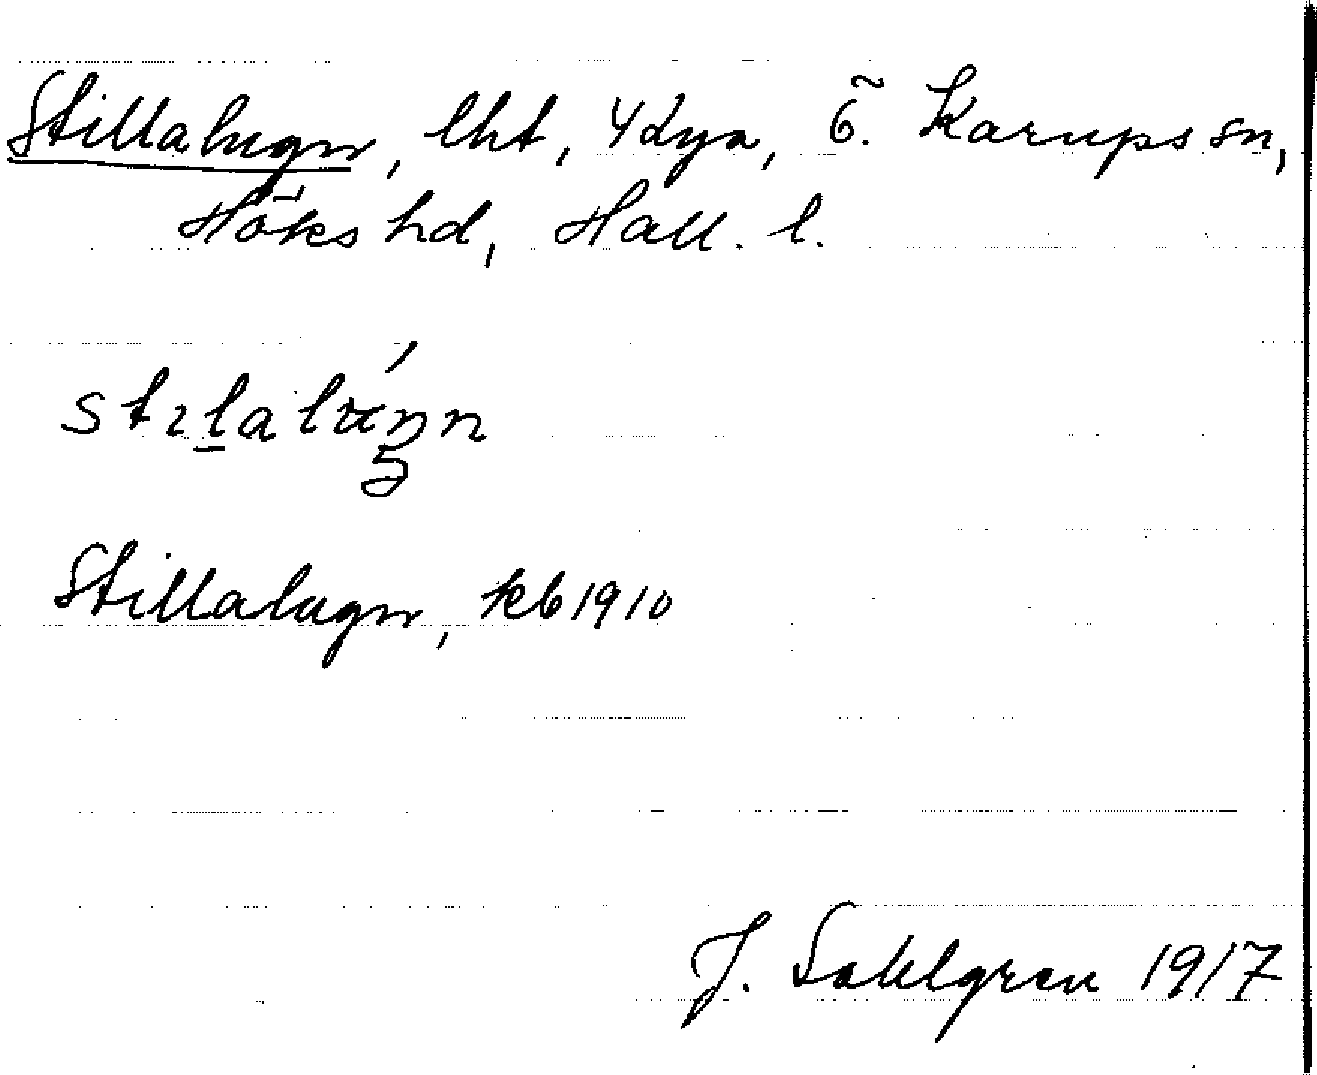 Stillalugn, lht, Ydya, Ö. Karups sn,
Höks hd, Hall. l.
Stillalugn, kb 1910
J. Sahlgren 1917